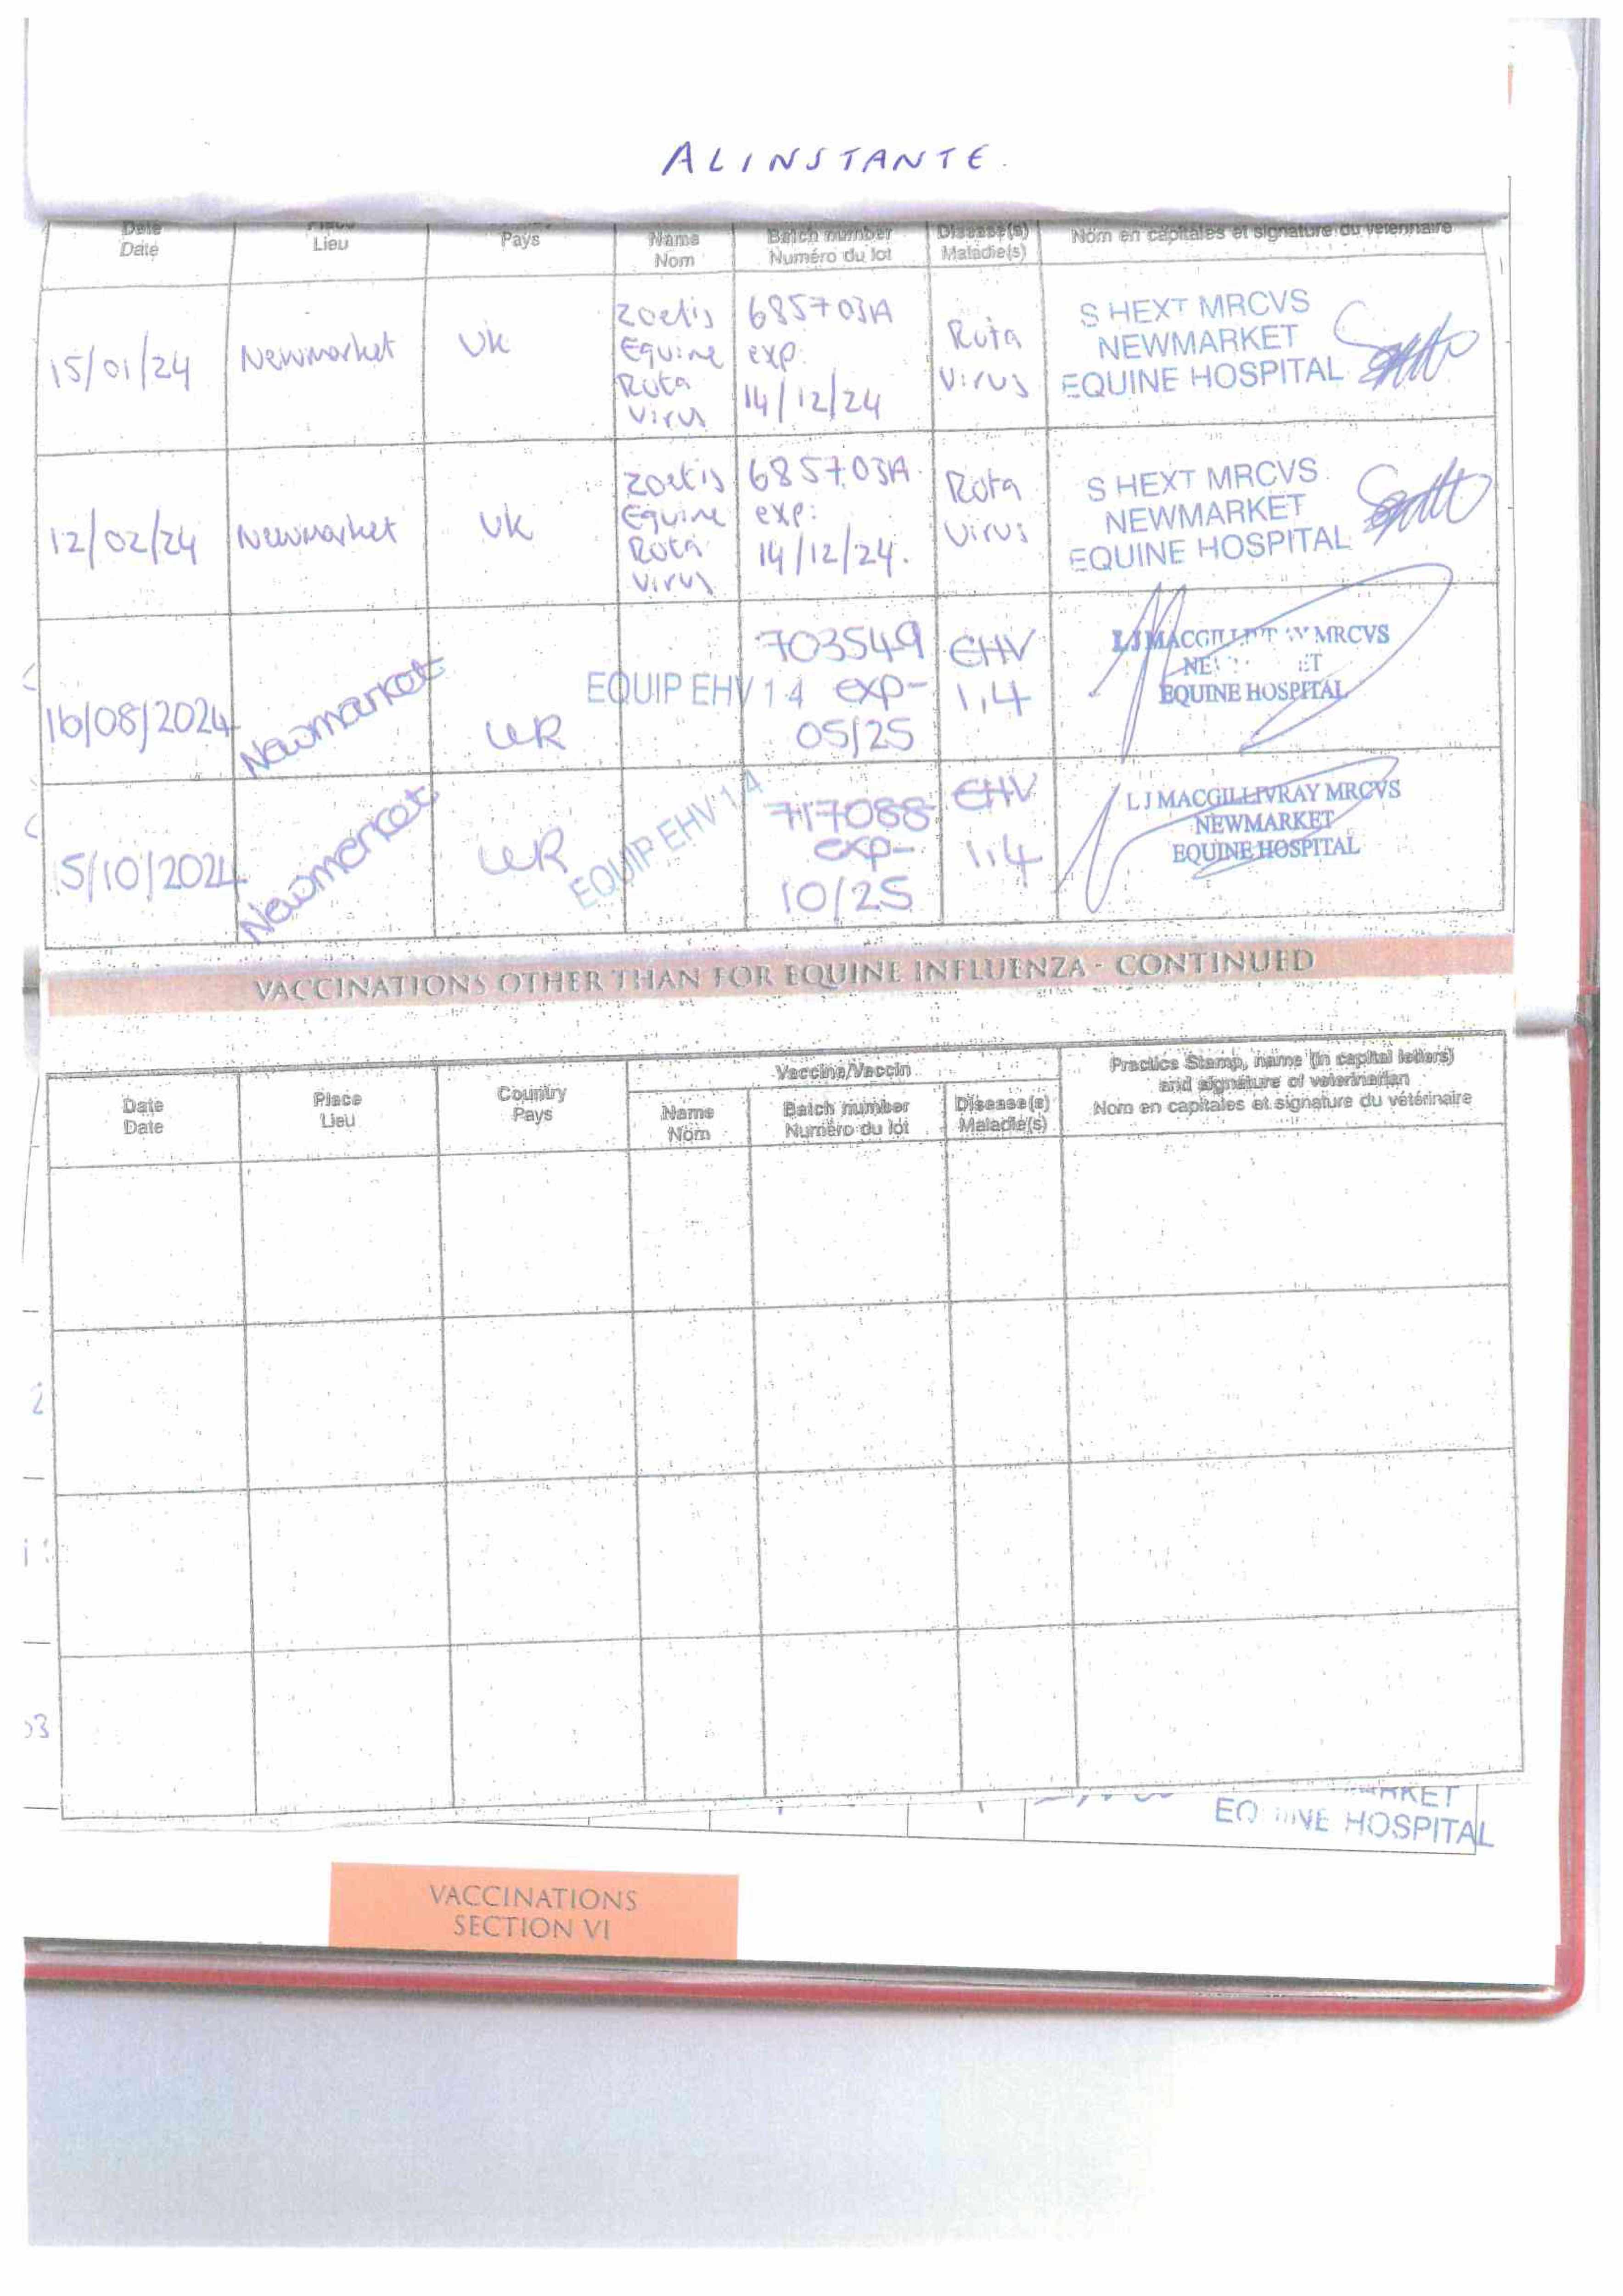 ALINSTANTE.
Date Place Pays Name Batch number Disease(s) Nom en capitales et signature du vétérinaire
Date Lieu Nom Numéro du lot Maladie(s)
15/01/24 Newmarket UK Zoetis Equine Rota Virus 685703A exp: 14/12/24 Rota Virus S HEXT MRCVS
NEWMARKET
EQUINE HOSPITAL
12/02/24 Newmarket UK Zoetis Equine Rota Virus 685703A exp: 14/12/24. Rota Virus S HEXT MRCVS
NEWMARKET
EQUINE HOSPITAL
16/08/2024 Newmarket UK EQUIP EHV 1 4 703549 exp- 05/25 EHV 1,4 L J MACGILLIVRAY MRCVS
EQUINE HOSPITAL
5/10/2024 Newmarket UK EQUIP EHV 1 4 717088 exp- 10/25 EHV 1,4 L J MACGILLIVRAY MRCVS
NEWMARKET
EQUINE HOSPITAL
VACCINATIONS OTHER THAN FOR EQUINE INFLUENZA - CONTINUED
Vaccine/Vaccin Practice Stamp, name (in capital letters)
and signature of veterinarian
Date Place Country Name Batch number Disease(s) Nom en capitales et signature du vétérinaire
Date Lieu Pays Nom Numéro du lot Maladie(s)
2
03
EQUINE HOSPITAL
VACCINATIONS
SECTION VI